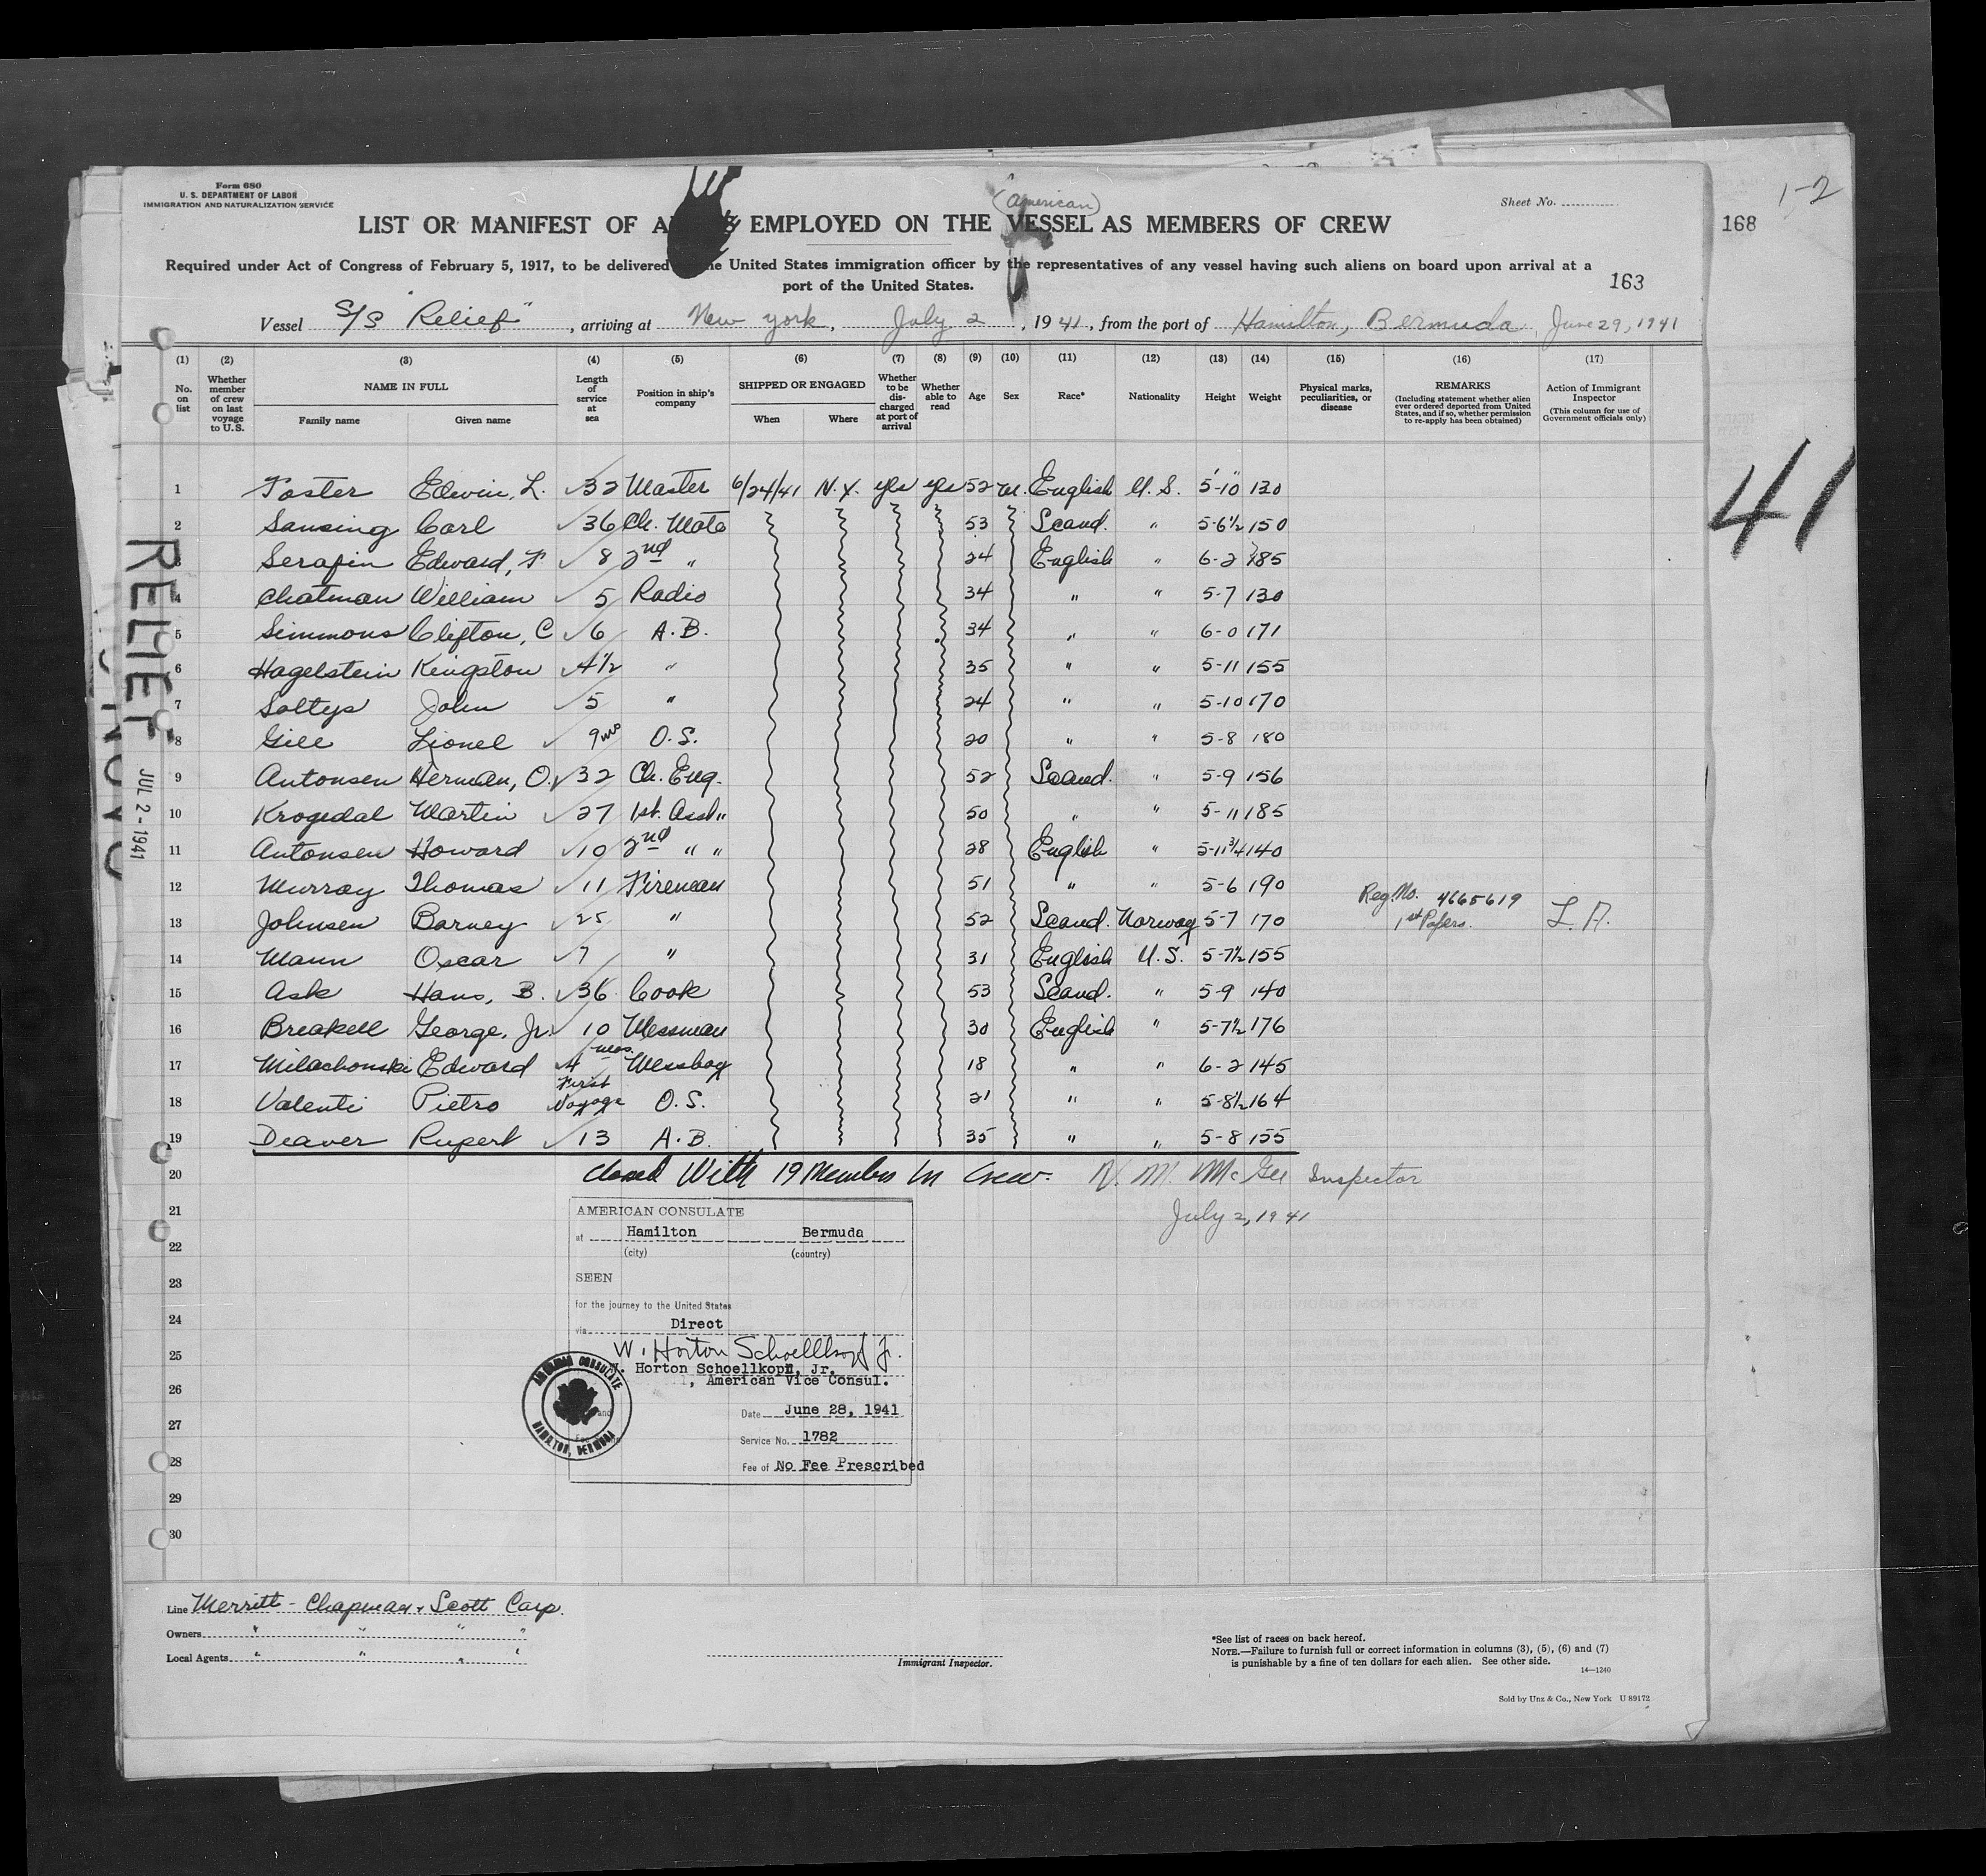 Form 680
U. S. DEPARTMENT OF LABOR
IMMIGRATION AND NATURALIZATION SERVICE
Sheet No.
1-2
168
(American)
LIST OR MANIFEST OF A EMPLOYED ON THE VESSEL AS MEMBERS OF CREW
Required under Act of Congress of February 5, 1917, to be delivered the United States immigration officer by the representatives of any vessel having such aliens on board upon arrival at a
port of the United States.
163
Vessel S/S "Relief", arriving at New York, July 2, 1941, from the port of Hamilton, Bermuda, June 29, 1941
(1) (2) (3) (4) (5) (6) (7) (8) (9) (10) (11) (12) (13) (14) (15) (16) (17)
No. on list
Whether member of crew on last voyage to U.S.
NAME IN FULL
Family name Given name
Length of service at sea
Position in ship's company
SHIPPED OR ENGAGED
When Where
Whether to be discharged at port of arrival
Whether able to read
Age
Sex
Race*
Nationality
Height
Weight
Physical marks, peculiarities, or disease
REMARKS
(Including statement whether alien ever ordered deported from United States, and if so, whether permission to re-apply has been obtained)
Action of Immigrant Inspector
(This column for use of Government officials only)
1 Foster Edwin, L. 32 Master 6/24/41 N.Y. yes yes 52 M. English U.S. 5'-10" 130
2 Sansing Carl 36 Ch. Mate 53 Scand. " 5-6½ 150
3 Serafin Edward, F. 8 2nd " 24 English " 6-2 185
4 Chatman William 5 Radio 34 " " 5-7 130
5 Simmons Clifton, C 6 A.B. 34 " " 6-0 171
6 Hagelstein Kingston 4½ " 35 " " 5-11 155
7 Soltys John 5 " 24 " " 5-10 170
8 Gill Lionel 9 mos O.S. 20 " " 5-8 180
9 Antonsen Herman, O. 32 Ch. Eng. 52 Scand. " 5-9 156
10 Krogedal Martin 27 1st. Asst " 50 " " 5-11 185
11 Antonsen Howard 10 2nd " " 28 English " 5-11¾ 140
12 Murray Thomas 11 Fireman 51 " " 5-6 190
13 Johnsen Barney 25 " 52 Scand. Norway 5-7 170 Reg. No. 4665619 1st Papers. L.A.
14 Mann Oscar 7 " 31 English U.S. 5-7½ 155
15 Ask Hans, B. 36 Cook 53 Scand. " 5-9 140
16 Breakell George, Jr. 10 Messman 30 English " 5-7½ 176
17 Milachouski Edward 4 mos. Messboy 18 " " 6-2 145
18 Valenti Pietro First Voyage O.S. 21 " " 5-8½ 164
19 Deaver Rupert 13 A.B. 35 " " 5-8 155
20 Closed With 19 Members In Crew. N. M. McGee Inspector
21 July 2, 1941
22
23
24
25
26
27
28
29
30
AMERICAN CONSULATE
at Hamilton Bermuda
(city) (country)
SEEN
for the journey to the United States
via Direct
W. Horton Schoellkopf Jr.
Horton Schoellkopf, Jr.
, American Vice Consul.
Date June 28, 1941
Service No. 1782
Fee of No Fee Prescribed
AMERICAN CONSULATE
HAMILTON, BERMUDA
RELIEF
JUL 2 - 1941
41
Line Merritt-Chapman & Scott Corp.
Owners " " " "
Local Agents " " " "
Immigrant Inspector.
*See list of races on back hereof.
NOTE.—Failure to furnish full or correct information in columns (3), (5), (6) and (7)
is punishable by a fine of ten dollars for each alien. See other side.
14—1240
Sold by Unz & Co., New York U 89172